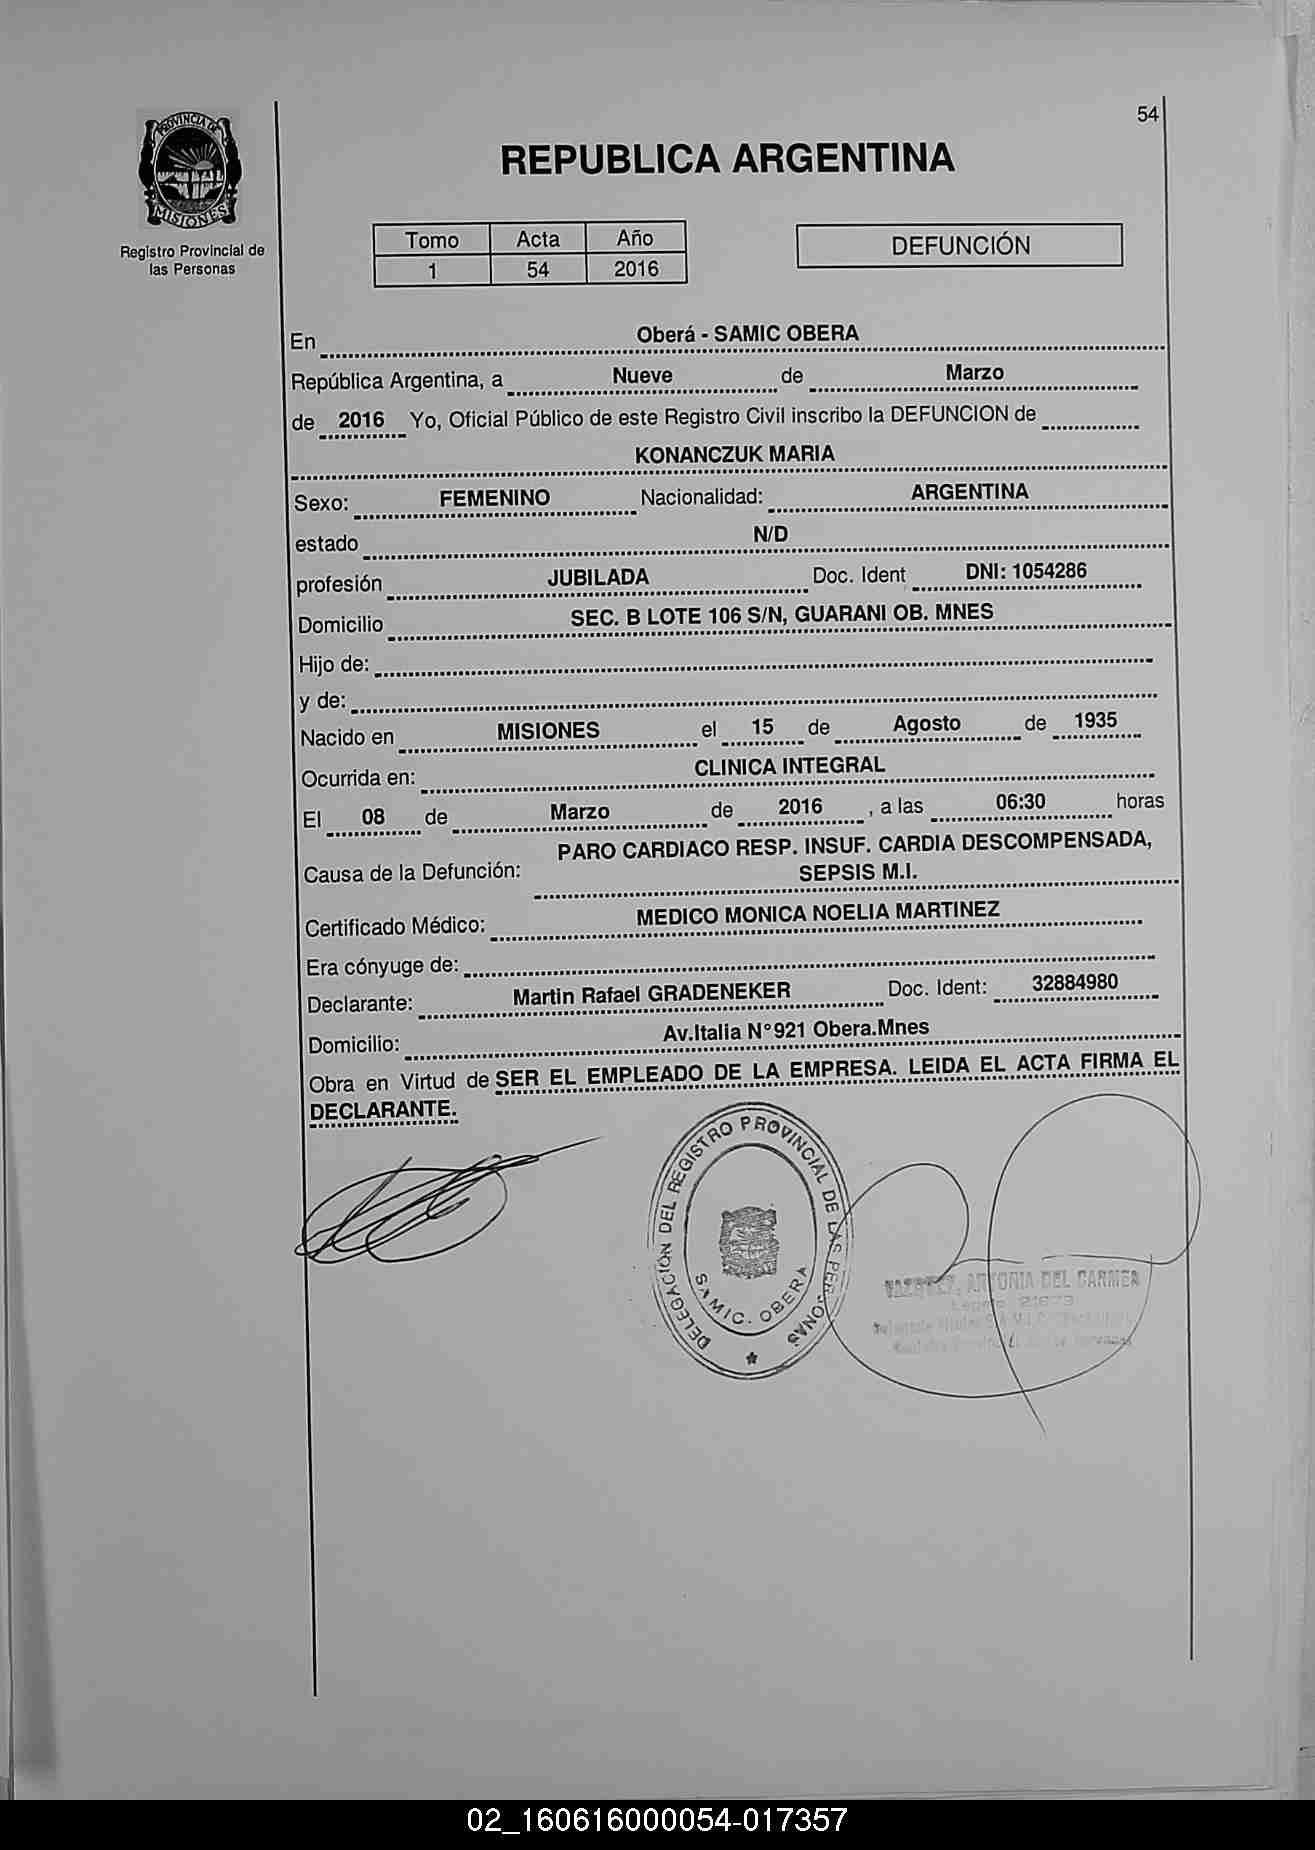 54
PROVINCIA DE
MISIONES
Registro Provincial de
las Personas
REPUBLICA ARGENTINA
Tomo Acta Año
1 54 2016
DEFUNCIÓN
En Oberá - SAMIC OBERA
República Argentina, a Nueve de Marzo
de 2016 Yo, Oficial Público de este Registro Civil inscribo la DEFUNCION de
KONANCZUK MARIA
Sexo: FEMENINO Nacionalidad: ARGENTINA
estado N/D
profesión JUBILADA Doc. Ident DNI: 1054286
Domicilio SEC. B LOTE 106 S/N, GUARANI OB. MNES
Hijo de:
y de:
Nacido en MISIONES el 15 de Agosto de 1935
Ocurrida en: CLINICA INTEGRAL
El 08 de Marzo de 2016 , a las 06:30 horas
PARO CARDIACO RESP. INSUF. CARDIA DESCOMPENSADA,
Causa de la Defunción: SEPSIS M.I.
Certificado Médico: MEDICO MONICA NOELIA MARTINEZ
Era cónyuge de:
Declarante: Martin Rafael GRADENEKER Doc. Ident: 32884980
Domicilio: Av.Italia N°921 Obera.Mnes
Obra en Virtud de SER EL EMPLEADO DE LA EMPRESA. LEIDA EL ACTA FIRMA EL
DECLARANTE.
DELEGACIÓN DEL REGISTRO PROVINCIAL DE LAS PERSONAS
SAMIC. OBERA
ANTONIA DEL CARMEN
02_160616000054-017357